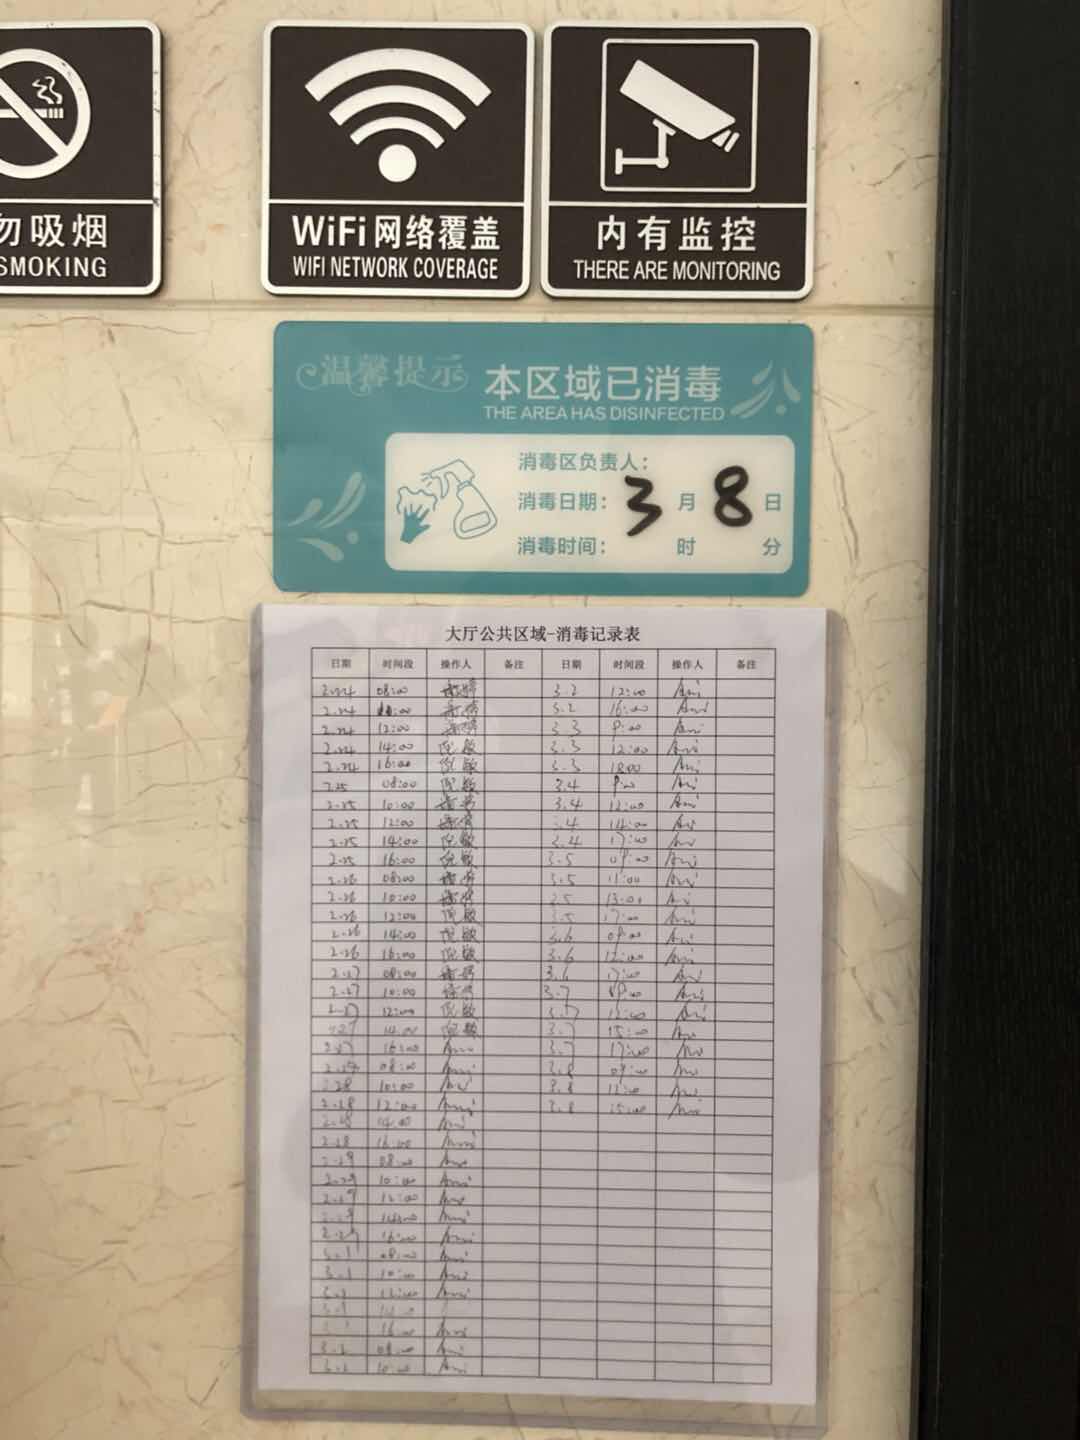 勿吸烟
SMOKING
WiFi网络覆盖
WIFI NETWORK COVERAGE
内有监控
THERE ARE MONITORING
温馨提示
本区域已消毒
THE AREA HAS DISINFECTED
消毒区负责人：
消毒日期：3月8日
消毒时间： 时 分
大厅公共区域-消毒记录表
日期 时间段 操作人 备注 日期 时间段 操作人 备注
2.24 08:00 3.2 12:00 Ani
2.24 :00 3.2 16:00 Ani
2.24 12:00 3.3 9:00 Ani
2.24 14:00 3.3 12:00 Ani
2.24 16:00 3.3 18:00 Ani
2.25 08:00 3.4 9:00 Ani
2.25 10:00 3.4 12:00 Ani
2.25 12:00 3.4 14:00 Ani
2.25 14:00 3.4 17:00 Ani
2.25 16:00 3.5 09:00 Ani
2.26 08:00 3.5 11:00 Ani
2.26 10:00 3.5 13:00 Ani
2.26 12:00 3.5 17:00 Ani
2.26 14:00 3.6 09:00 Ani
2.26 16:00 3.6 12:00 Ani
2.27 08:00 3.6 17:00 Ani
2.27 10:00 3.7 09:00 Ani
2.27 12:00 3.7 12:00 Ani
2.27 14:00 3.7 15:00 Ani
2.27 16:00 Ani 3.7 17:00 Ani
08:00 Ani 3.8 09:00 Ani
2.28 10:00 Ani 3.8 12:00 Ani
2.28 12:00 Ani 3.8 15:00 Ani
2.28 14:00 Ani
2.28 16:00 Ani
2.29 08:00 Ani
2.29 10:00 Ani
2.29 12:00 Ani
2.29 14:00 Ani
2.29 16:00 Ani
3.1 08:00 Ani
3.1 10:00 Ani
3.1 12:00 Ani
3.1 14:00
3.1 16:00 Ani
3.2 08:00 Ani
3.2 10:00 Ani